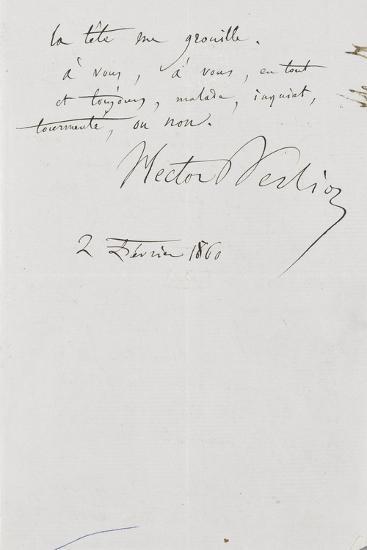 la tête me grouille.
à vous, à vous, en tout
et toujours, malade, inquiet,
tourmenté, ou non.
Hector Berlioz
2 Février 1860